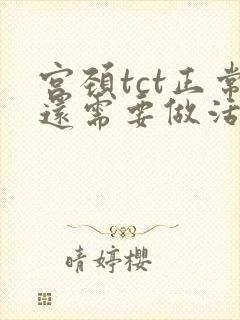 宫颈tct正常
还需要做活
晴婷樱